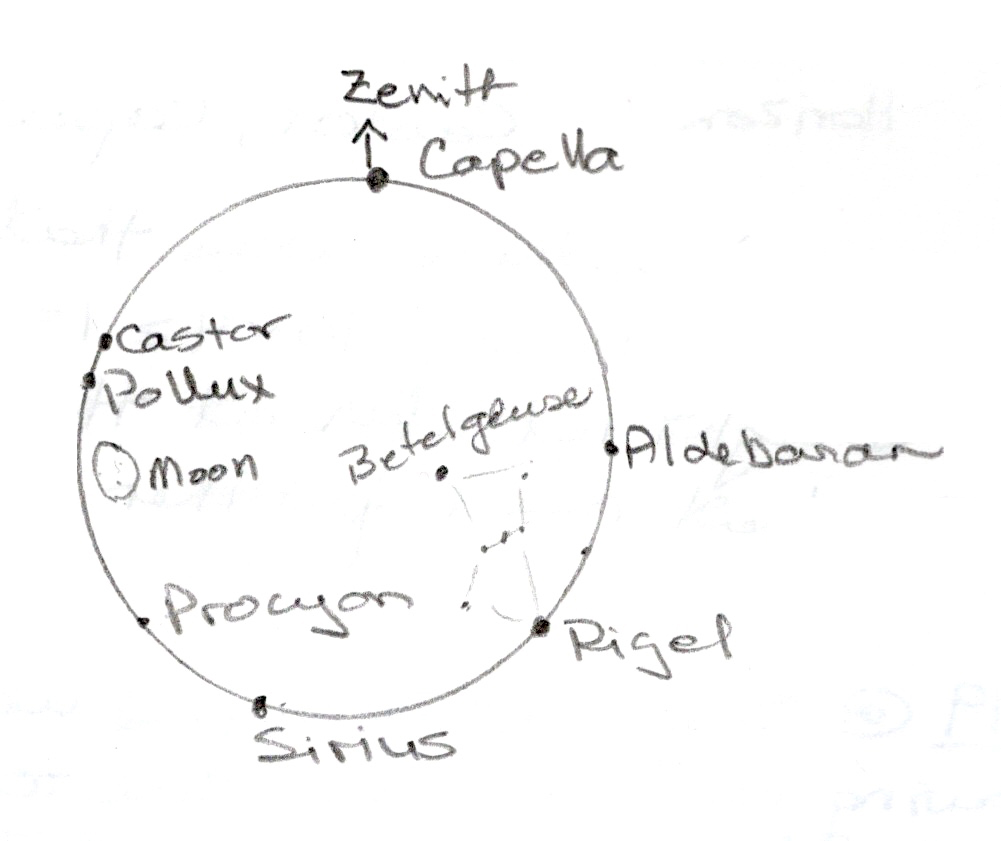 Zenith
Capella
Castor
Pollux
Betelgeuse
Aldebaran
Moon
Procyon
Rigel
Sirius